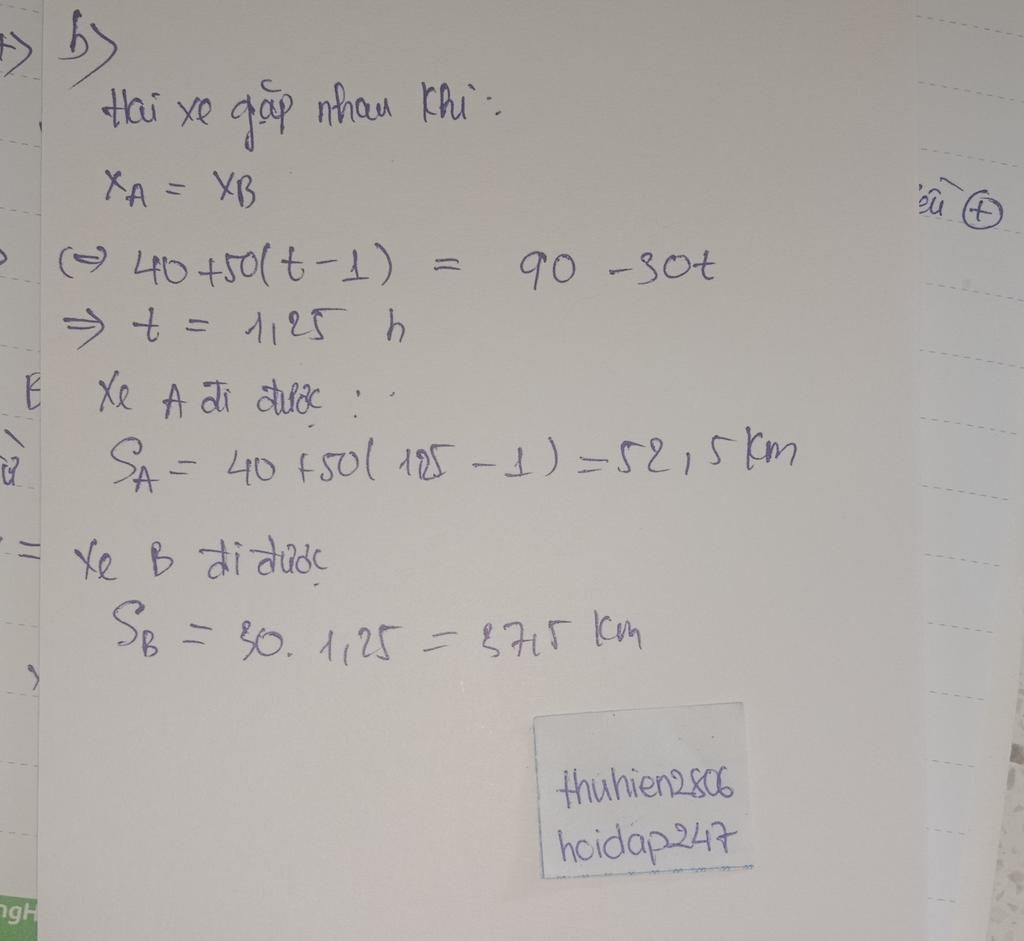 b)
Hai xe gặp nhau khi:
xA = xB
(=> 40+50(t-1) = 90 -30t
=> t = 1,25 h
Xe A đi được :
SA = 40 +50( 125 -1) = 52,5 Km
Xe B đi được
SB = 30. 1,25 = 37,5 Km
thuhien2806
hoidap247
+)
E
=
ều (+)
ngH